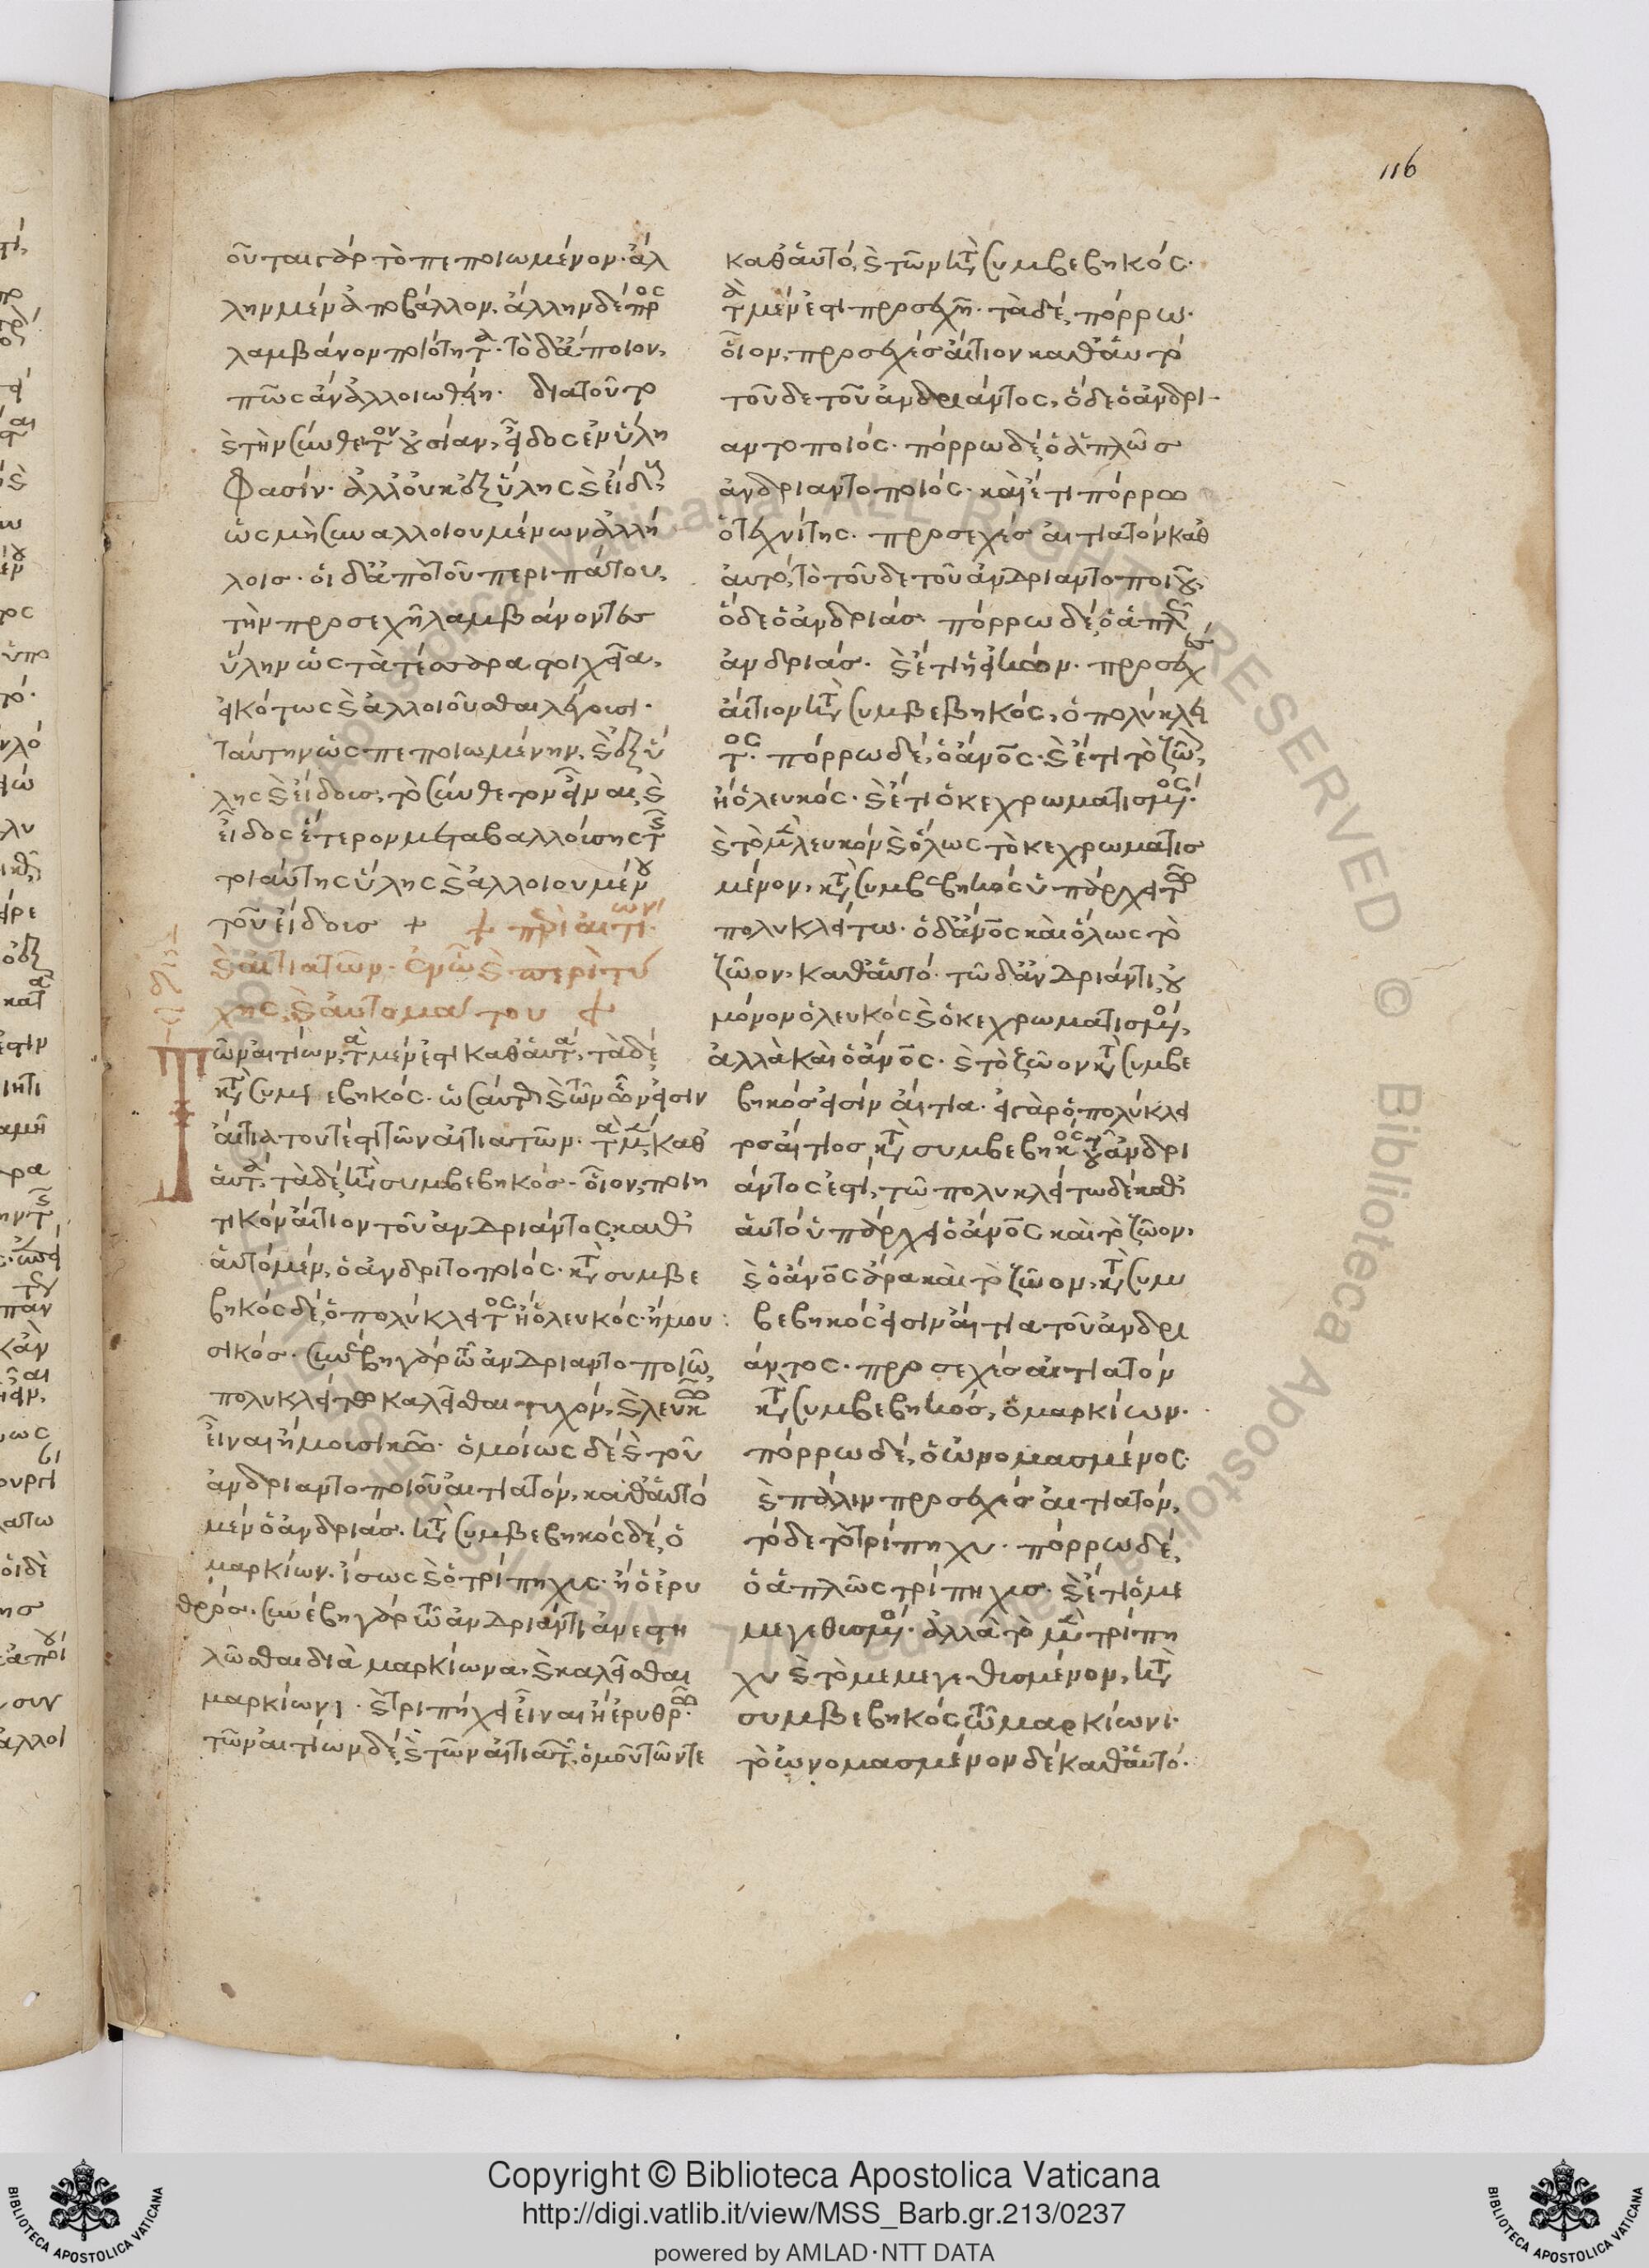 116
οῦται γὰρ τὸ πεποιωμένον· ἄλ
λην μὲν ἀποβάλλον, ἄλλην δὲ προς
λαμβάνον ποιότητα· τὸ δ' ἄποιον,
πῶς ἂν ἀλλοιωθείη· διατοῦτο
καὶ τὴν σύνθετον οὐσίαν, εἶδος ἐν ὕλη
φασίν· ἀλλ' οὐκ ἐξ ὕλης καὶ εἴδους,
ὡς μὴ συναλλοιουμένων ἀλλή
λοις· οἱ δ' ἀπὸ τοῦ περιπάτου,
τὴν προσεχῆ λαμβάνοντες
ὕλην ὡς τὰ τέσσαρα στοιχεῖα,
εἰκότως καὶ ἀλλοιοῦσθαι λέγουσι·
ταύτην ὡς πεποιωμένην, καὶ ἐξ ὕ
λης καὶ εἴδους, τὸ σύνθετον εἶναι, καὶ
εἶδος ἕτερον μεταβαλλούσης τῆς
τοιαύτης ὕλης καὶ ἀλλοιουμένου
τοῦ εἴδους + + περὶ αἰτίων
καὶ αἰτιατῶν· ἐν ᾧ καὶ περὶ τύ
χης, καὶ αὐτομάτου +
Τῶν αἰτίων, τὰ μέν ἐστι καθ' αὑτά, τὰ δὲ
κατὰ συμβεβηκός· ὡσαύτως καὶ τῶν ὧν εἰσιν
αἴτια τουτέστι τῶν αἰτιατῶν· τὰ μὲν, καθ'
αὑτά, τὰ δὲ, κατὰ συμβεβηκός· οἷον, ποιη
τικὸν αἴτιον τοῦ ἀνδριάντος, καθ'
αὑτὸ μέν, ὁ ἀνδριτοποιός· κατὰ συμβε
βηκὸς δὲ, ὁ πολύκλειτος ἢ ὁ λευκός· ἢ μου
σικός· συνέβη γὰρ τῶ ἀνδριαντοποιῶ,
πολυκλείτω καλεῖσθαι τυχόν, καὶ λευκῶ
εἶναι ἢ μουσικῶ· ὁμοίως δὲ καὶ τοῦ
ἀνδριαντοποιοῦ αἰτιατόν, καθ' αὑτὸ
μὲν ὁ ἀνδριάς· κατὰ συμβεβηκὸς δὲ, ὁ
μαρκίων· ἴσως καὶ ὁ τρίπηχυς· ἢ ὁ ἐρυ
θρός· συνέβη γὰρ τῶ ἀνδριάντι ἀνεστη
λῶσθαι διὰ μαρκίωνα, καὶ καλεῖσθαι
μαρκίωνι· καὶ τριπήχει εἶναι ἢ ἐρυθρῶ·
τῶν αἰτίων δὲ, καὶ τῶν αἰτιατῶν, ὁμοῦ τῶν τε
καθ' αὑτό, καὶ τῶν κατὰ συμβεβηκός·
τὰ μέν ἐστι προσεχῆ· τὰ δὲ, πόρρω·
οἷον, προσεχὲς αἴτιον καθ' αὑτὸ
τοῦδε τοῦ ἀνδριάντος, ὅδε ὁ ἀνδρι
αντοποιός· πόρρω δὲ, ὁ ἁπλῶς
ἀνδριαντοποιός· καὶ ἔτι πόρρω
ὁ τεχνίτης· προσεχὲς αἰτιατὸν καθ'
αὑτό, τὸ τοῦδε τοῦ ἀνδριαντοποιοῦ,
ὅδε ὁ ἀνδριάς· πόρρω δὲ, ὁ ἁπλῶς
ἀνδριάς· καὶ ἔτι ἡ εἰκών· προσεχὲς
αἴτιον κατὰ συμβεβηκός, ὁ πολύκλει
τος· πόρρω δὲ, ὁ ἄνος· καὶ ἔτι τὸ ζῶον,
ἢ ὁ λευκός· καὶ ἔτι ὁ κεχρωματισμένος·
καὶ τὸ μὲν λευκὸν καὶ ὅλως τὸ κεχρωματισ
μένον, κατὰ συμβεβηκὸς ὑπάρχει τῶ
πολυκλείτω· ὁ δ' ἄνος καὶ ὅλως τὸ
ζῶον, καθ' αὑτό· τῶ δ' ἀνδριάντι, οὐ
μόνον ὁ λευκὸς καὶ ὁ κεχρωματισμένος,
ἀλλὰ καὶ ὁ ἄνος· καὶ τὸ ζῶον κατὰ συμβε
βηκός εἰσιν αἴτια· εἰ γὰρ ὁ πολύκλει
τος αἴτιος κατὰ συμβεβηκὸς τοῦ ἀνδρι
άντος ἐστί, τῶ πολυκλείτω δὲ καθ'
αὑτὸ ὑπάρχει ὁ ἄνος καὶ τὸ ζῶον,
καὶ ὁ ἄνος ἄρα καὶ τὸ ζῶον, κατὰ συμ
βεβηκός εἰσιν αἴτια τοῦ ἀνδρι
άντος· προσεχὲς αἰτιατὸν
κατὰ συμβεβηκός, ὁ μαρκίων·
πόρρω δὲ, ὁ ὠνομασμένος·
καὶ πάλιν προσεχὲς αἰτιατόν,
τόδε τὸ τρίπηχυ· πόρρω δὲ,
ὁ ἁπλῶς τρίπηχυς· καὶ ἔτι ὁ με
μεγεθυσμένος· ἀλλὰ τὸ μὲν τρίπη
χυ καὶ τὸ μεμεγεθυσμένον, κατὰ
συμβεβηκὸς τῶ μαρκίωνι·
τὸ ὠνομασμένον δὲ καθ' αὑτό·
Copyright © Biblioteca Apostolica Vaticana
http://digi.vatlib.it/view/MSS_Barb.gr.213/0237
powered by AMLAD·NTT DATA
BIBLIOTECA APOSTOLICA VATICANA
BIBLIOTECA APOSTOLICA VATICANA